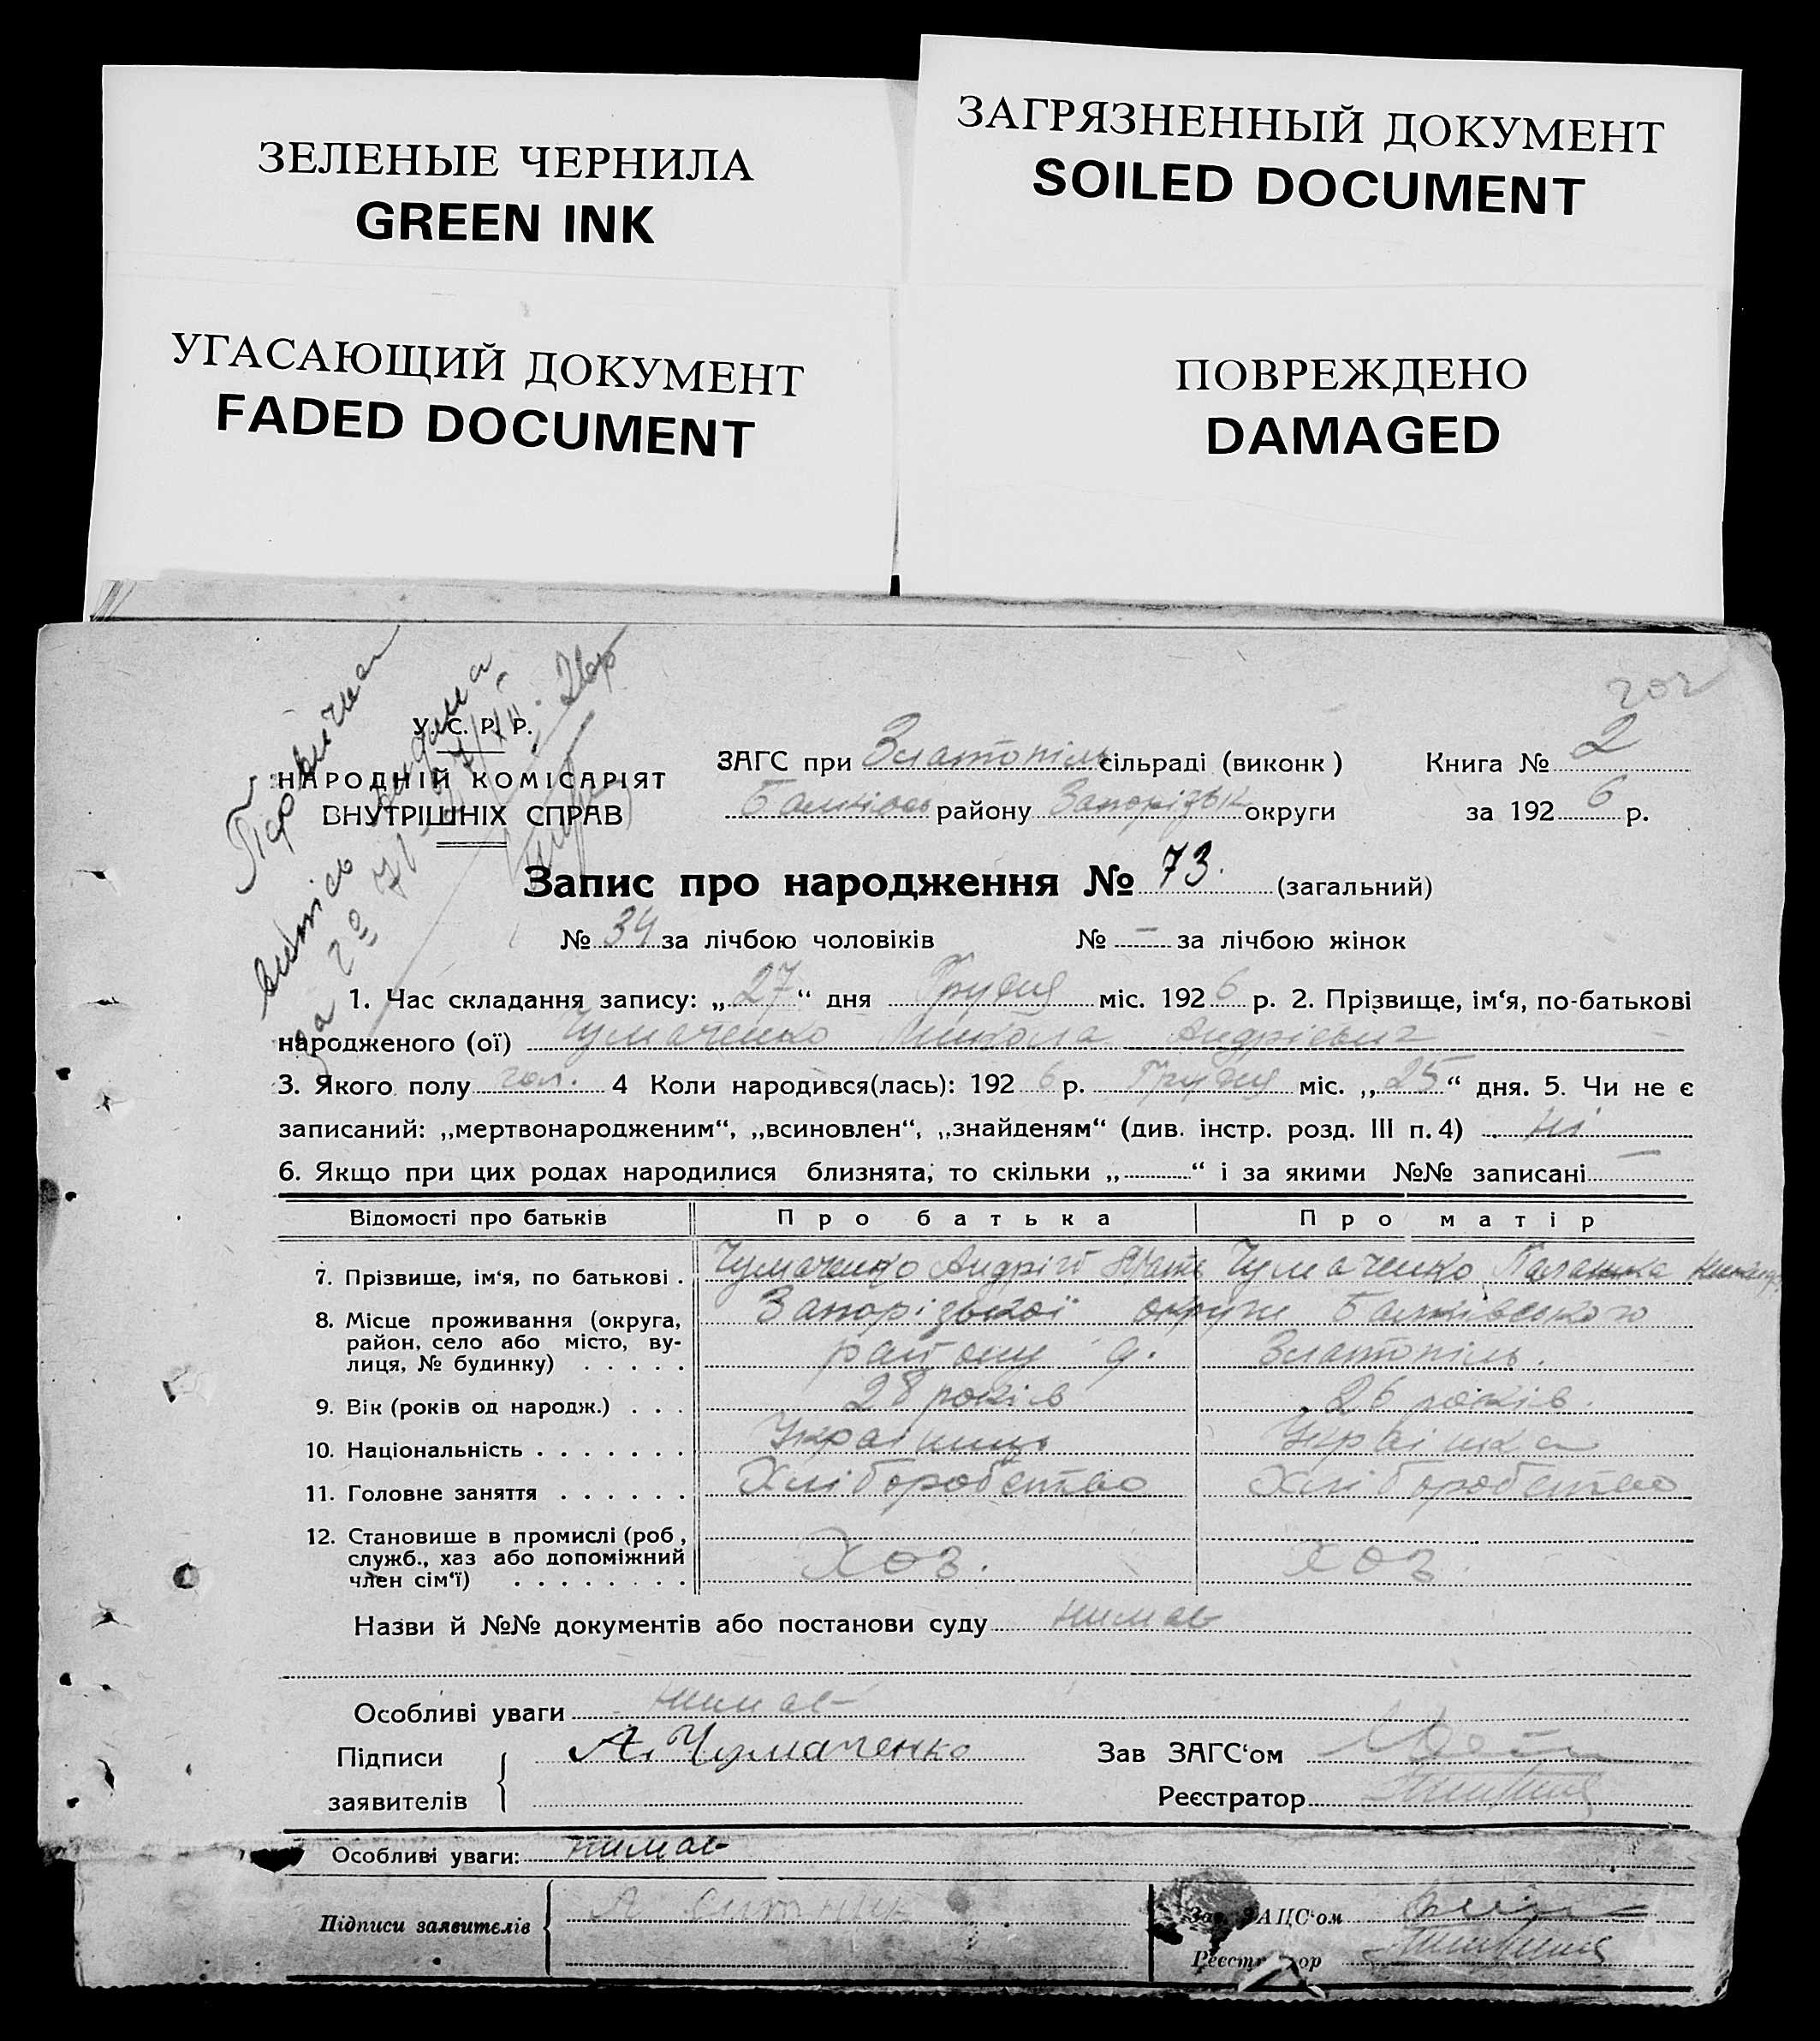 ЗЕЛЕНЫЕ ЧЕРНИЛА
GREEN INK
ЗАГРЯЗНЕННЫЙ ДОКУМЕНТ
SOILED DOCUMENT
УГАСАЮЩИЙ ДОКУМЕНТ
FADED DOCUMENT
ПОВРЕЖДЕНО
DAMAGED
202
Первична
випись видана
за №
У. С. Р. Р.
НАРОДНІЙ КОМІСАРІЯТ
ВНУТРІШНІХ СПРАВ
ЗАГС при Златопіль сільраді (виконк) Книга № 2
району Запорізьк округи за 192 6 р.
Запис про народження № 73. (загальний)
№ 34 за лічбою чоловіків № — за лічбою жінок
1. Час складання запису: „ 27 “ дня Грудня міс. 192 6 р. 2. Прізвище, ім‘я, по-батькові
народженого (ої) Чумаченко Микола Андрієвич
3. Якого полу чол. 4 Коли народився(лась): 192 6 р. Грудня міс. „ 25 “ дня. 5. Чи не є
записаний: „мертвонародженим“, „всиновлен“, „знайденям“ (див. інстр. розд. III п. 4) ні
6. Якщо при цих родах народилися близнята, то скільки „ “ і за якими №№ записані —
Відомості про батьків Про батька Про матір
7. Прізвище, ім‘я, по батькові . Чумаченко Андрій Чумаченко Палашка
8. Місце проживання (округа, Запорізької округи
район, село або місто, ву- району Златопіль.
лиця, № будинку) . . . . .
9. Вік (років од народж.) . . . 28 років 26 років.
10. Національність . . . . . . . Українець Українка
11. Головне заняття . . . . . . Хліборобство Хліборобство
12. Становище в промислі (роб.,
служб., хаз або допоміжний хоз. хоз.
член сім‘ї) . . . . . . . .
Назви й №№ документів або постанови суду нимає
Особливі уваги нимає
Підписи А. Чумаченко Зав ЗАГС‘ом
заявителів Реєстратор
Особливі уваги: нимає
Підписи заявителів А Ситник Зав. ЗАЦС‘ом
Реєстратор